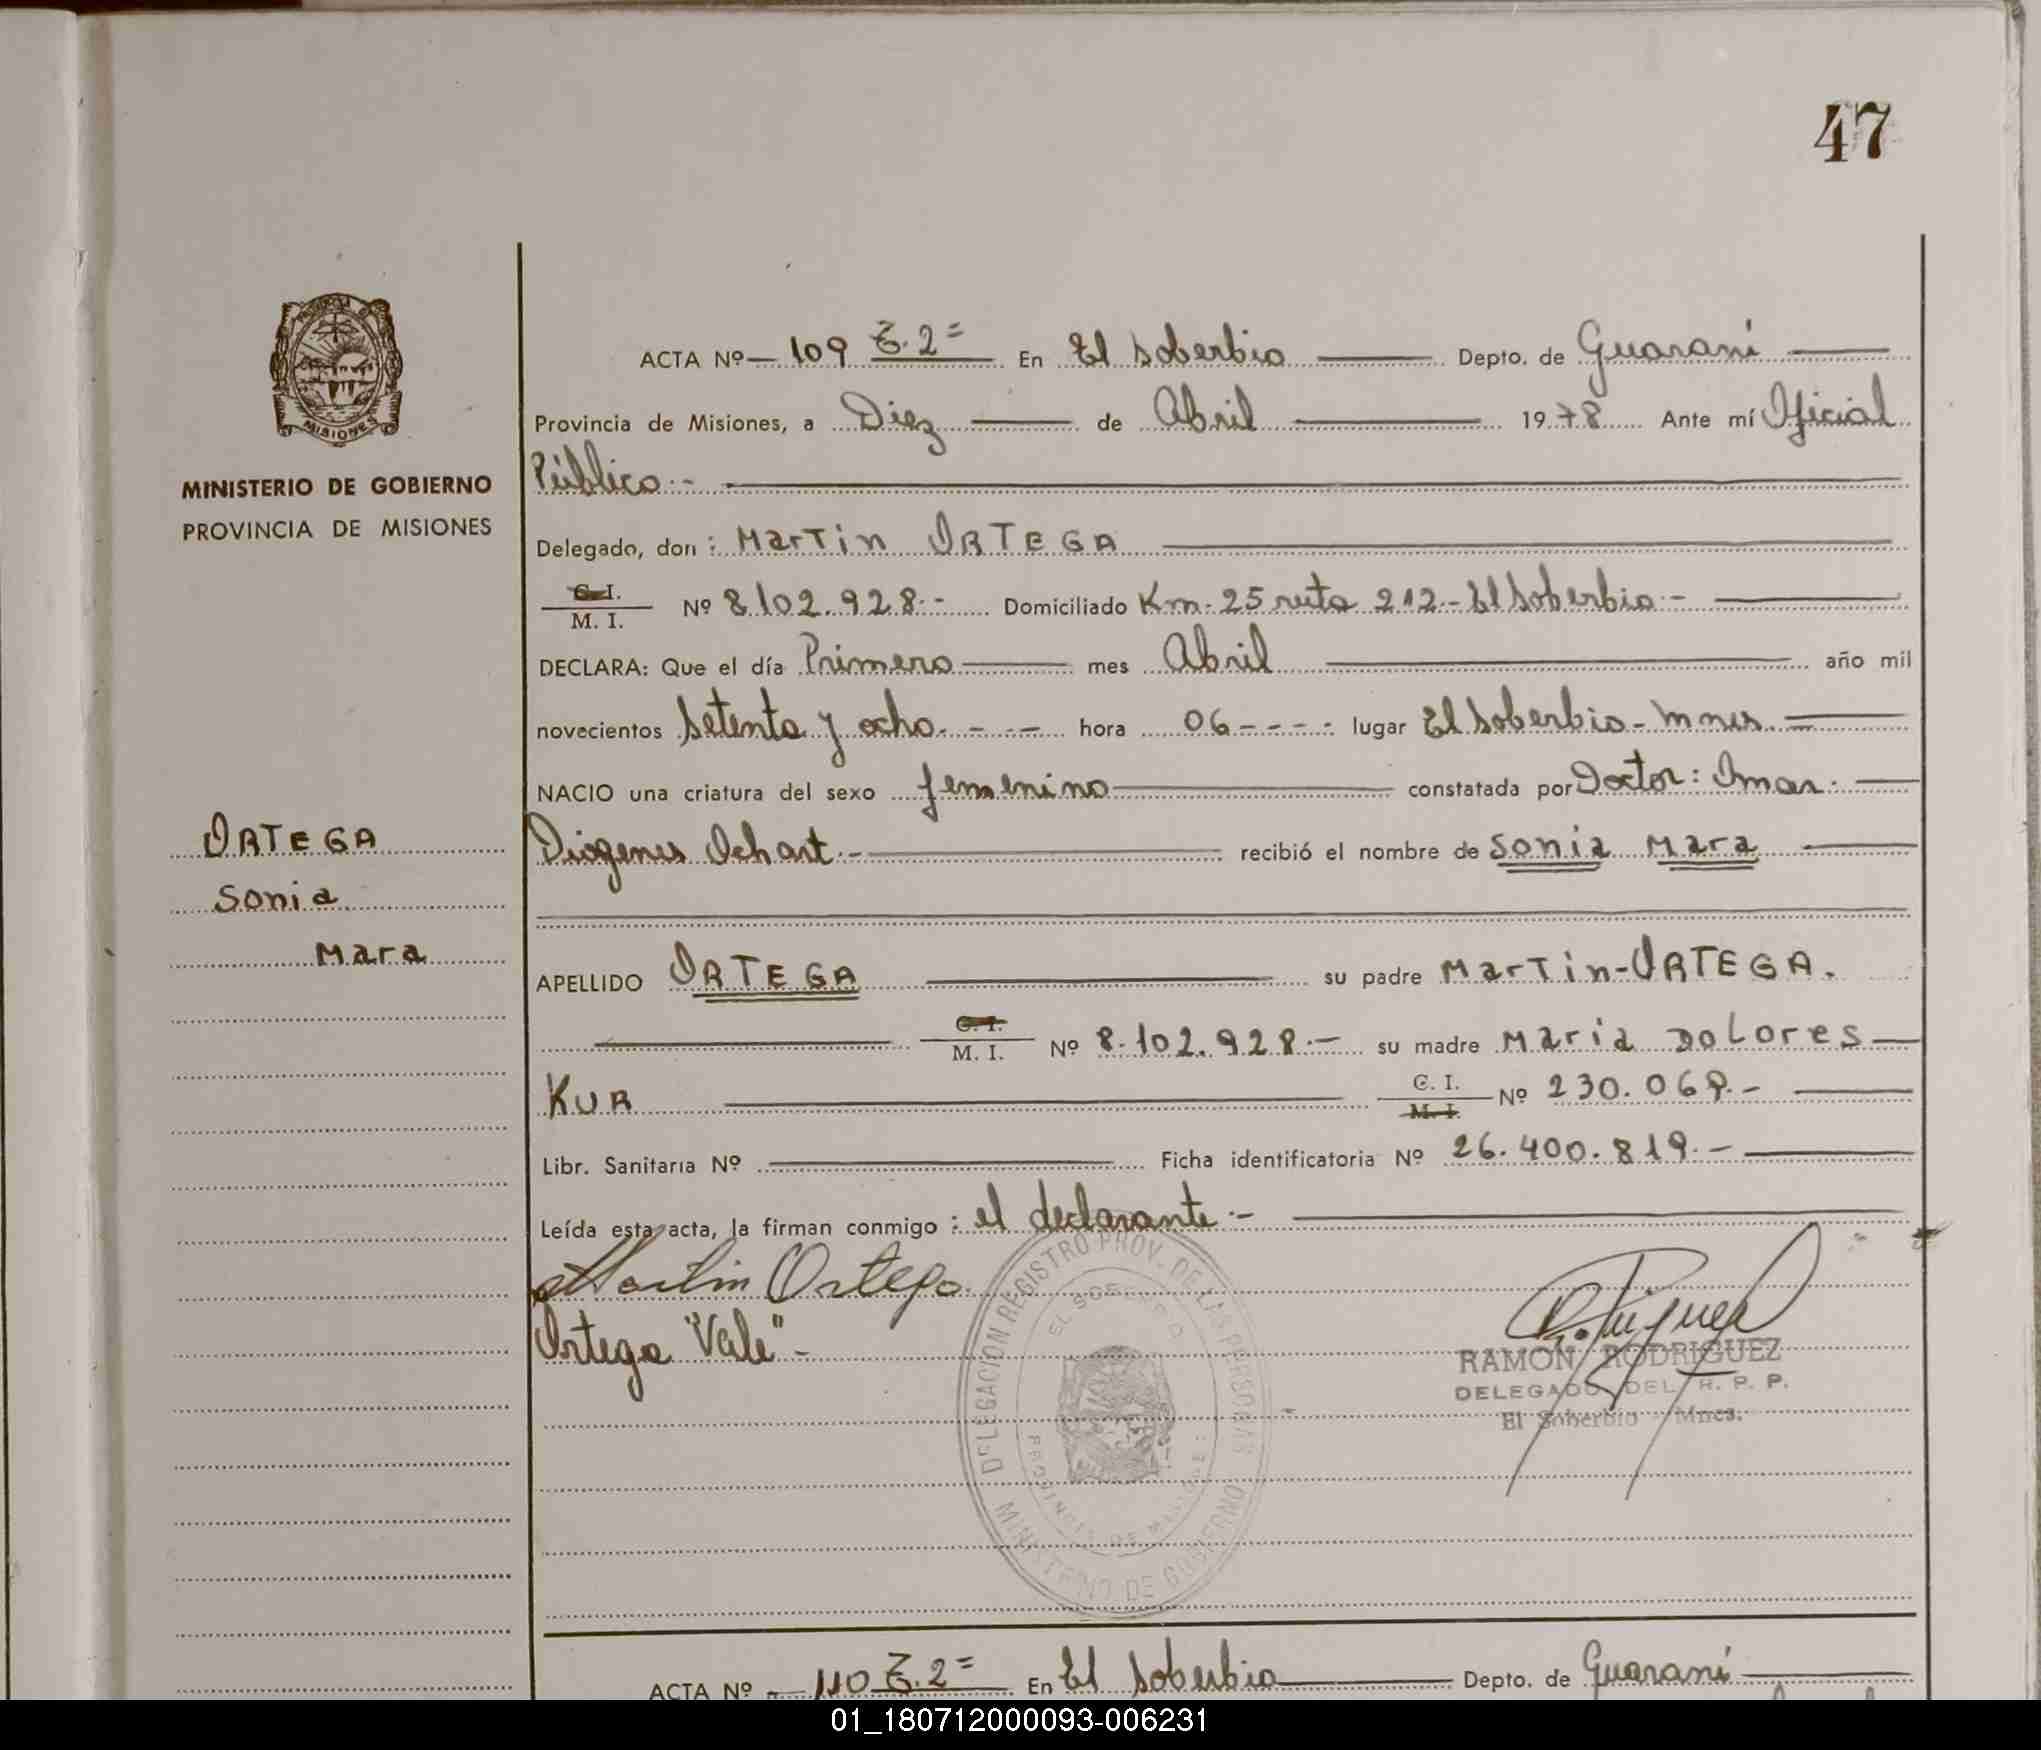 47
PROVINCIA DE
MISIONES
MINISTERIO DE GOBIERNO
PROVINCIA DE MISIONES
ORTEGA
Sonia
Mara
ACTA Nº 109 T.2= En El Soberbio Depto. de Guaraní
Provincia de Misiones, a Diez de Abril 1978 Ante mí Oficial
Público.-
Delegado, don: Martin ORTEGA
C. I.
M. I. Nº 8.102.928.- Domiciliado Km. 25 ruta 212 - El Soberbio.-
DECLARA: Que el día Primero mes Abril año mil
novecientos Setenta y ocho.- - - hora 06 - - - - lugar El Soberbio - Mnes.
NACIO una criatura del sexo femenino constatada por Doctor: Omar.
Diogenes Ochart.- recibió el nombre de Sonia Mara
APELLIDO ORTEGA su padre Martin-ORTEGA.
C. I.
M. I. Nº 8.102.928.- su madre Maria DOLores
KUR C. I.
M. I. Nº 230.069.-
Libr. Sanitaria Nº Ficha identificatoria Nº 26.400.819.-
Leída esta acta, la firman conmigo: el declarante.-
Martin Ortega
Ortega "Vale"-
DELEGACION REGISTRO PROV. DE LAS PERSONAS
EL SOBERBIO
PROVINCIA DE MISIONES
MINISTERIO DE GOBIERNO
RAMON RODRIGUEZ
DELEGADO DEL R. P. P.
El Soberbio - Mnes.
ACTA Nº 110 T.2= En El Soberbio Depto. de Guaraní
01_180712000093-006231